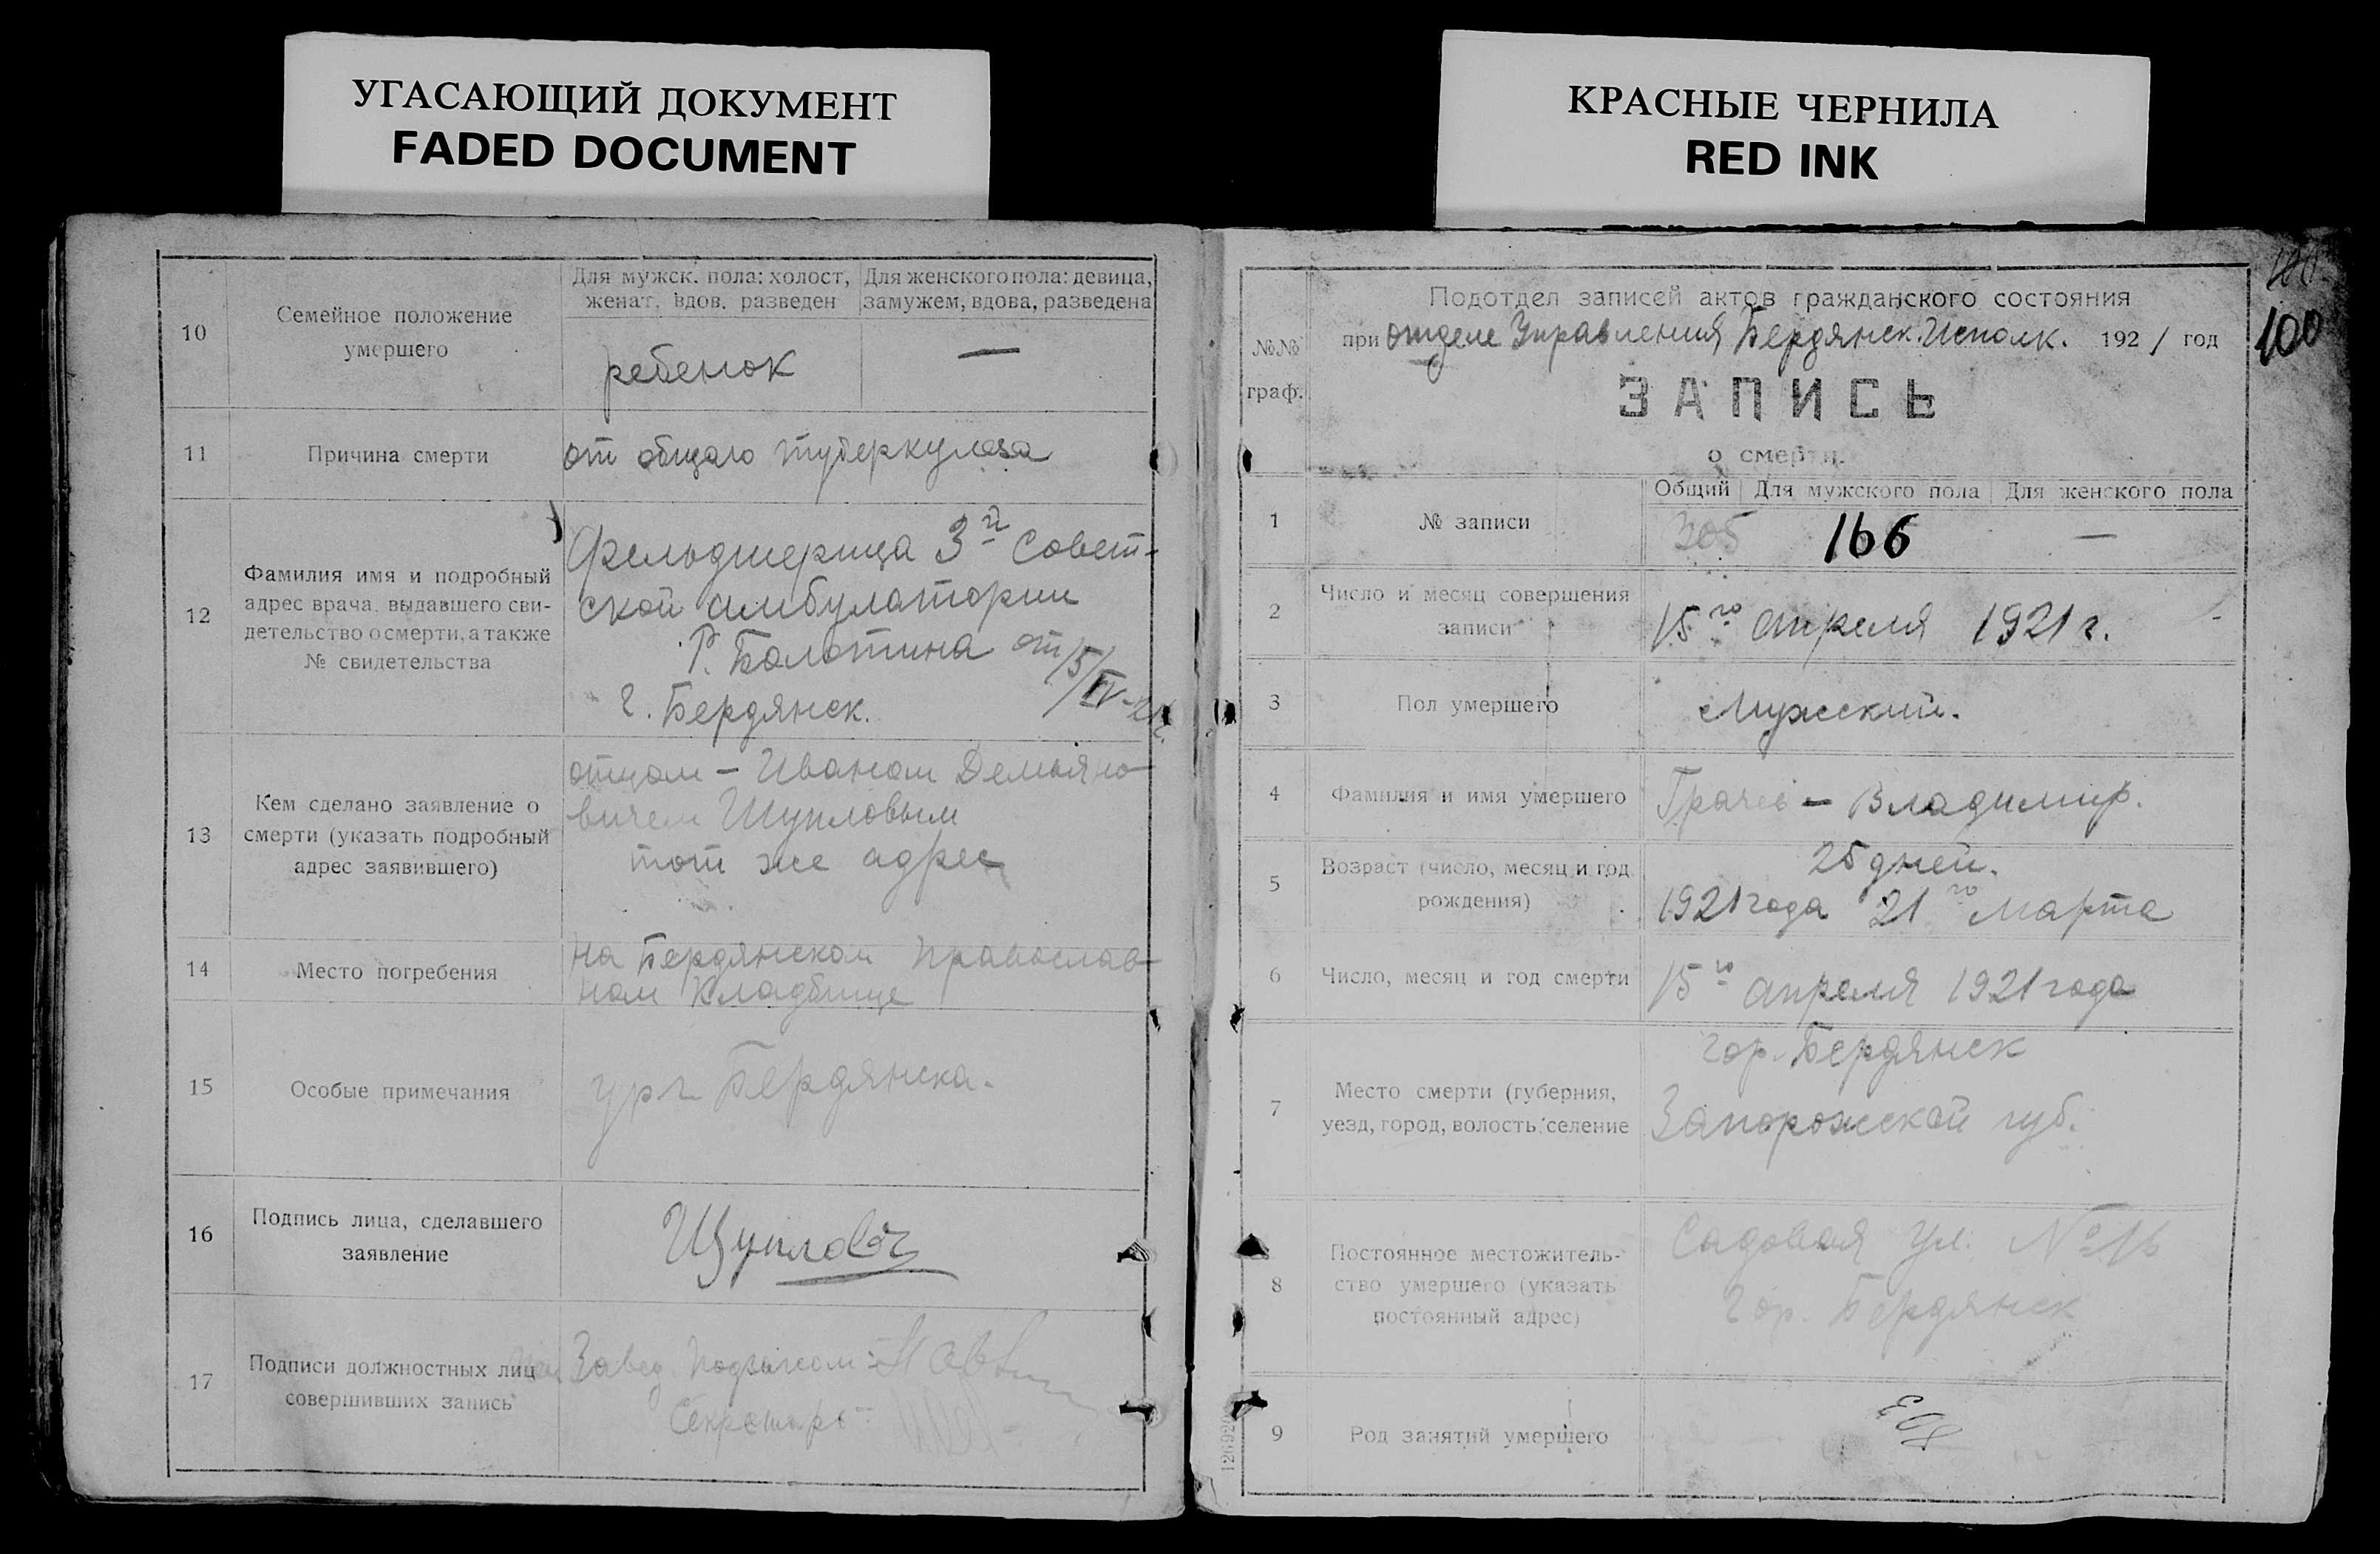 УГАСАЮЩИЙ ДОКУМЕНТ
FADED DOCUMENT
КРАСНЫЕ ЧЕРНИЛА
RED INK
10
Семейное положение
умершего
Для мужск. пола: холост,
женат, вдов, разведен
Для женского пола: девица,
замужем, вдова, разведена
ребенок
—
11
Причина смерти
от общаго туберкулеза
12
Фамилия имя и подробный
адрес врача, выдавшего сви-
детельство о смерти, а также
№ свидетельства
Фельдшерица 3й Совет-
ской амбулатории
Р. Болотина от 15/IV-21г.
г. Бердянск.
13
Кем сделано заявление о
смерти (указать подробный
адрес заявившего)
отцом – Иваном Демьяно-
вичем Щупловым
тот же адрес
14
Место погребения
на Бердянском Православ-
ном кладбище
15
Особые примечания
Бердянска.
16
Подпись лица, сделавшего
заявление
Щуплов
17
Подписи должностных лиц
совершивших запись
Завед. Подъотделом:
Секретарь:
100
№№
граф.
Подотдел записей актов гражданского состояния
при отделе Управления Бердянск. Исполк. 1921 год
ЗАПИСЬ
о смерти.
1
№ записи
Общий
Для мужского пола
Для женского пола
305
166
—
2
Число и месяц совершения
записи
15го апреля 1921 г.
3
Пол умершего
Мужский.
4
Фамилия и имя умершего
Грачев – Владимир.
5
Возраст (число, месяц и год
рождения)
25 дней.
1921 года 21го марта
6
Число, месяц и год смерти
15го апреля 1921 года
7
Место смерти (губерния,
уезд, город, волость, селение
гор. Бердянск
Запорожской губ.
8
Постоянное местожитель-
ство умершего (указать
постоянный адрес)
Садовая ул. № 16
гор. Бердянск
9
Род занятий умершего